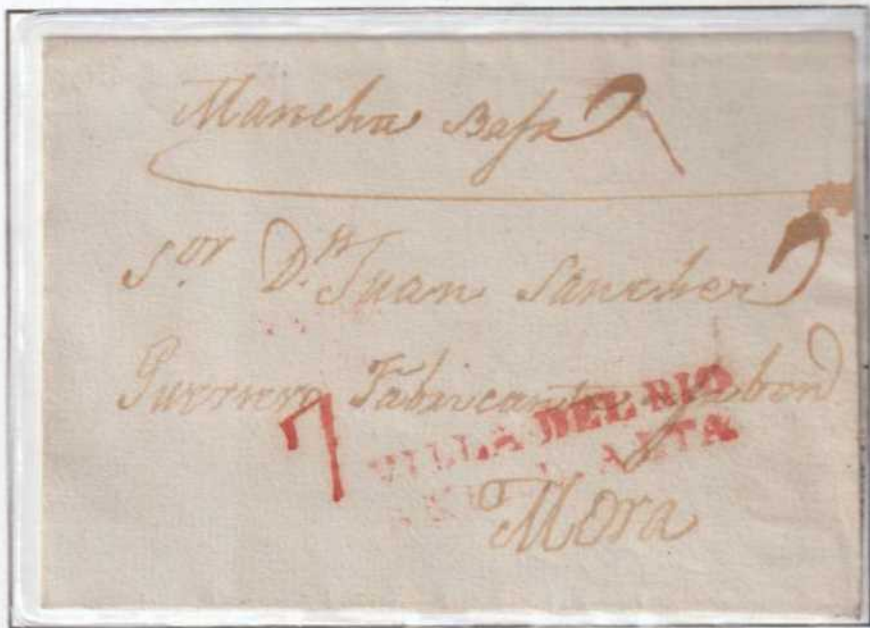 Mancha Baja
S.or D.n Juan Sanchez
Guerrero Fabricante Jabon
7 VILLA DEL RIO
ANDA. ALTA
Mora